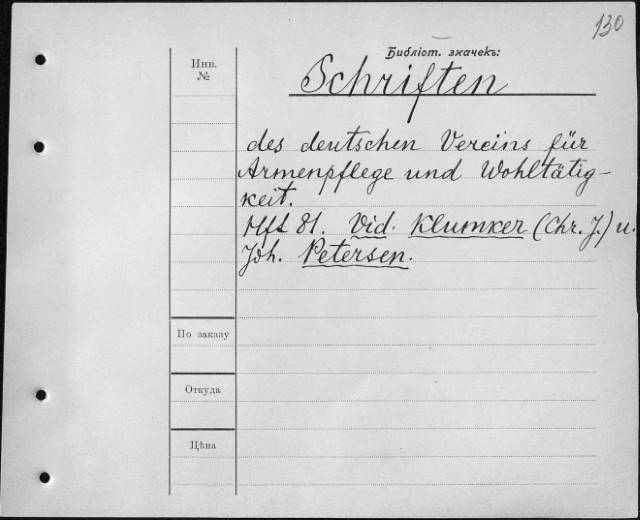 130
Библіот. значекъ:
Инв.
№
Schriften
des deutschen Vereins für
Armenpflege und Wohltätig-
keit.
Hft 81. Vid. Klumker (Chr. J.) u.
Joh. Petersen.
По заказу
Откуда
Цѣна